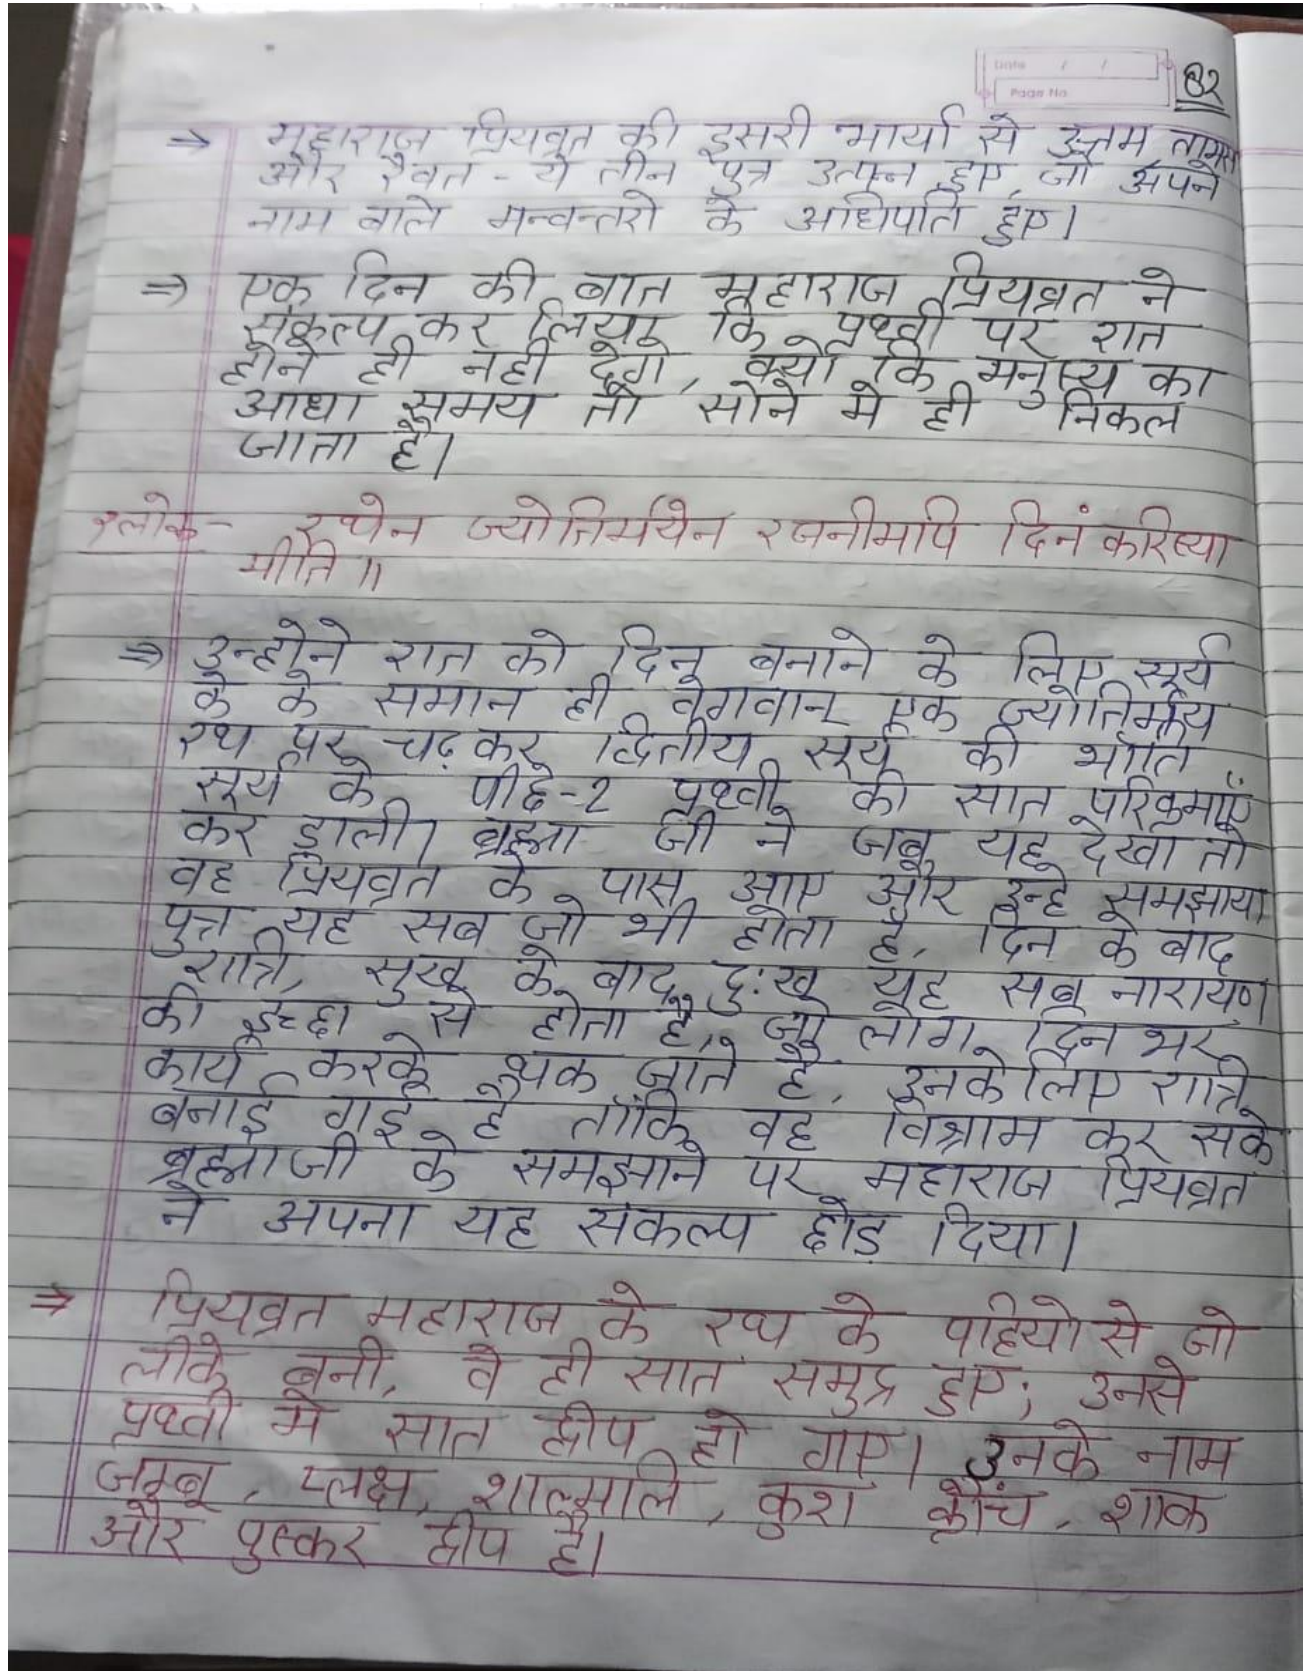 Date / /
Page No.
82
→ महाराज प्रियव्रत की दूसरी भार्या से उत्तम तामस
और रैवत - ये तीन पुत्र उत्पन्न हुए, जो अपने
नाम वाले मन्वन्तरो के अधिपति हुए।
⇒ एक दिन की बात महाराज प्रियव्रत ने
संकल्प कर लिया कि पृथ्वी पर रात
होने ही नही देगे, क्यों कि मनुष्य का
आधा समय तो सोने मे ही निकल
जाता है।
श्लोक - रथेन ज्योतिर्मयेन रजनीमपि दिनं करिष्या
मीति ॥
⇒ उन्होने रात को दिन बनाने के लिए सूर्य
के के समान ही वेगवान् एक ज्योतिर्मय
रथ पर चढ़कर द्वितीय सूर्य की भाँति
सूर्य के पीछे-2 पृथ्वी की सात परिक्रमाएँ
कर डाली। ब्रह्मा जी ने जब यह देखा तो
वह प्रियव्रत के पास आए और उन्हे समझाया
पुत्र यह सब जो भी होता है, दिन के बाद
रात्रि, सुख के बाद दुःख यह सब नारायण
की इच्छा से होता है, जो लोग दिन भर
कार्य करके थक जाते है, उनके लिए रात्रि
बनाई गई है ताकि वह विश्राम कर सके
ब्रह्माजी के समझाने पर महाराज प्रियव्रत
ने अपना यह संकल्प छोड़ दिया।
⇒ प्रियव्रत महाराज के रथ के पहियो से जो
लीके बनी, वे ही सात समुद्र हुए; उनसे
पृथ्वी मे सात द्वीप हो गए। उनके नाम
जम्बू, प्लक्ष, शाल्मलि, कुश क्रौंच, शाक
और पुष्कर द्वीप है।